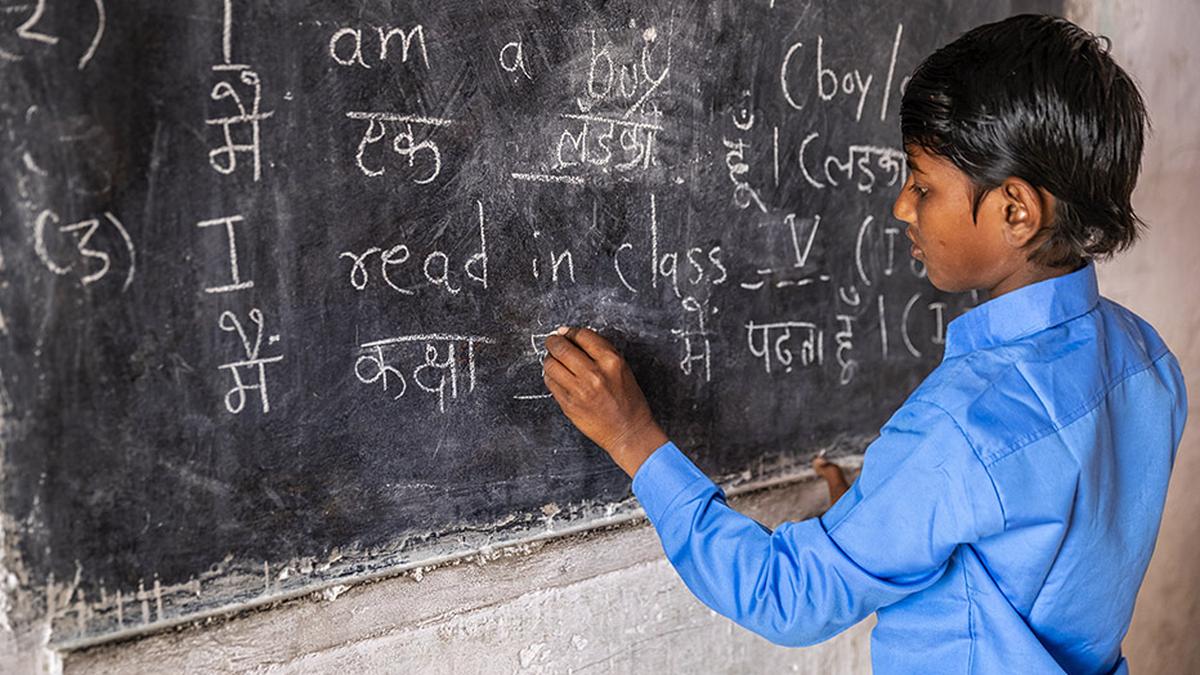 2) I am a boy (boy/
मैं एक लड़का हूँ । (लड़का
(3) I read in class V (I
मैं कक्षा में पढ़ता हूँ । (I